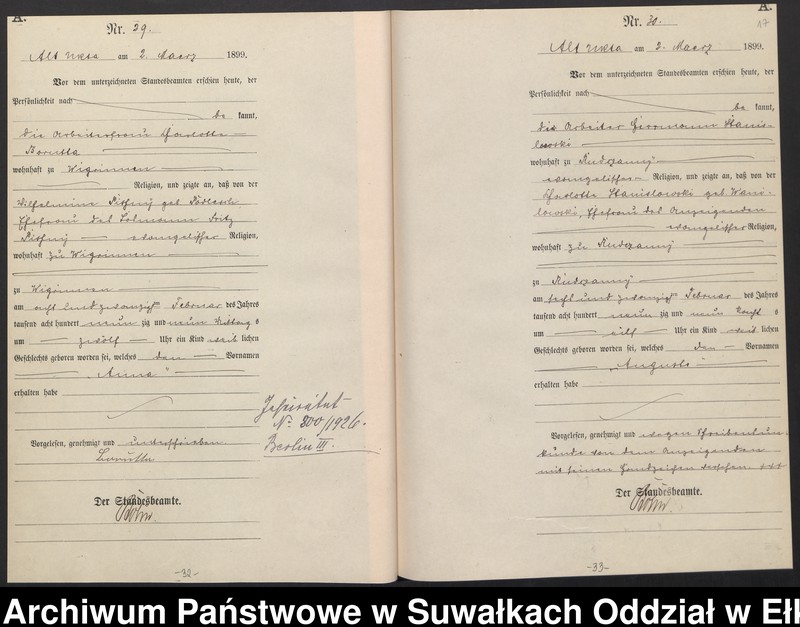 A.
Nr. 29.
Alt Ukta am 2. Maerz 1899.
Vor dem unterzeichneten Standesbeamten erschien heute, der
Persönlichkeit nach
be kannt,
die Arbeiterfrau Charlotte
Borutta
wohnhaft zu Wigrinnen
Religion, und zeigte an, daß von der
Wilhelmine geb.
Ehefrau des Fritz
evangelischer Religion,
wohnhaft zu Wigrinnen
zu Wigrinnen
am acht und zwanzigsten Februar des Jahres
tausend acht hundert neun zig und neun Mittags
um zwölf Uhr ein Kind weib lichen
Geschlechts geboren worden sei, welches den Vornamen
„Anna“
erhalten habe
Geheiratet
Nr. 800/1926.
Berlin III.
Vorgelesen, genehmigt und unterschrieben
Borutta
Der Standesbeamte.
-32-
A.
17
Nr. 30.
Alt Ukta am 2. Maerz 1899.
Vor dem unterzeichneten Standesbeamten erschien heute, der
Persönlichkeit nach
be kannt,
Arbeiter Herrmann Stanis-
lowski
wohnhaft zu Rudczanny
evangelischer Religion, und zeigte an, daß von der
Charlotte Stanislowski geb.
Ehefrau des Anzeigenden
evangelischer Religion,
wohnhaft zu Rudczanny
zu Rudczanny
am acht und zwanzigsten Februar des Jahres
tausend acht hundert neun zig und neun Nacht s
um elf Uhr ein Kind weib lichen
Geschlechts geboren worden sei, welches den Vornamen
„Auguste“
erhalten habe
Vorgelesen, genehmigt und wegen Schreibensun-
kunde von dem Anzeigenden
mit seinen Handzeichen versehen. +++
Der Standesbeamte.
-33-
Archiwum Państwowe w Suwałkach Oddział w Ełk